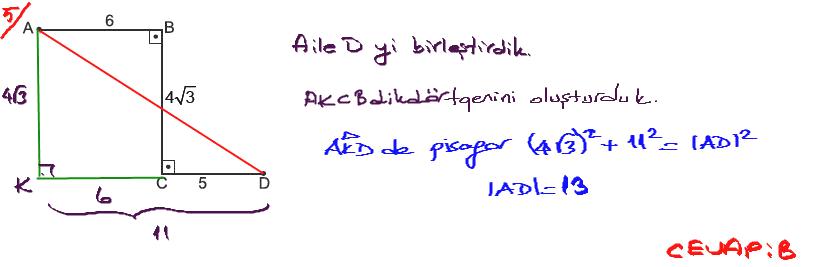 5/
A 6 B
4√3 4√3
K 6 C 5 D
11
A ile D yi birleştirdik.
AKCB dikdörtgenini oluşturduk.
AKD de pisagor (4√3)² + 11² = |AD|²
|AD| = 13
CEVAP: B